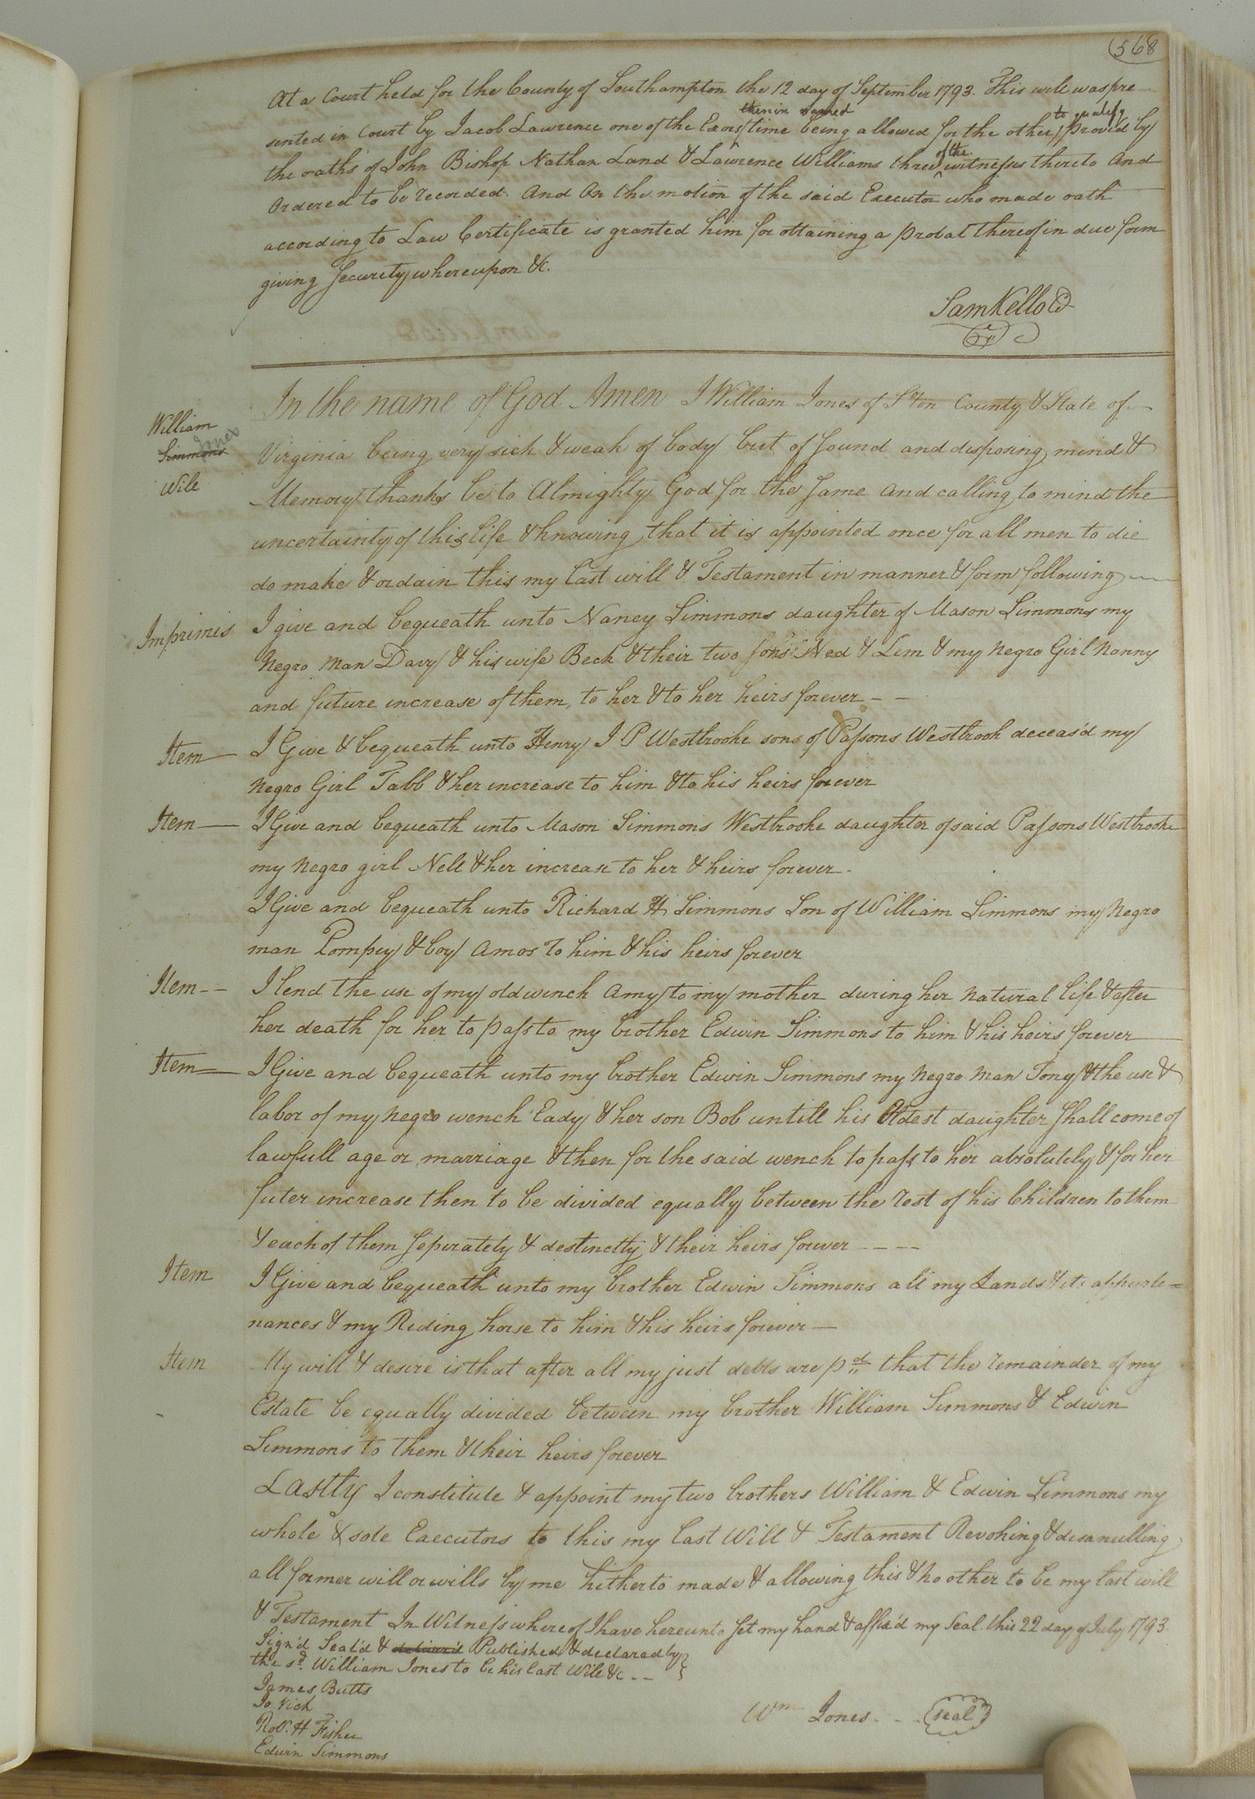 568
At a Court held for the County of Southampton the 12 day of September 1793. This will was pre-
therein named to qualify
sented in Court by Jacob Lawrence one of the Exors time being allowed for the other, proved by
of the
the oaths of John Bishop Nathan Land & Lawrence Williams three witnesses thereto And
Ordered to be recorded. And On the motion of the said Executor who made oath
according to Law Certificate is granted him for obtaining a probat thereof in due form
giving Security whereupon &c.
Sam Kello
William
Simmons Jones
Will
In the name of God Amen I William Jones of S'ton County & State of
Virginia being very sick & weak of body but of sound and disposing mind &
Memory thanks be to Almighty God for the same and calling to mind the
uncertainty of this life & knowing that it is appointed once for all men to die
do make & ordain this my last will & Testament in manner & form following
Imprimis I give and bequeath unto Nancy Simmons daughter of Mason Simmons my
Negro man Davy & his wife Beck & their two sons Ned & Lem & my Negro Girl Nanny
and future increase of them, to her & to her heirs forever - -
Item I Give & bequeath unto Henry J P Westbrooke sons of Passons Westbrook deceas'd my
Negro Girl Tabb & her increase to him & to his heirs forever
Item I Give and bequeath unto Mason Simmons Westbrooke daughter of said Passons Westbrooke
my Negro girl Nell & her increase to her & heirs forever.
I Give and bequeath unto Richard H Simmons Son of William Simmons my Negro
man Pompey & boy Amos To him & his heirs forever
Item -- I lend the use of my old wench Amy to my mother during her natural life & after
her death for her to pass to my brother Edwin Simmons to him & his heirs forever
Item I Give and bequeath unto my brother Edwin Simmons my Negro man Tony & the use &
labor of my Negro wench Eady & her son Bob untill his Oldest daughter shall come of
lawfull age or marriage & then for the said wench to pass to her absolutely & for her
futer increase then to be divided equally between the rest of his Children to them
& each of them seperately & destinctly & their heirs forever ----
Item I Give and bequeath unto my brother Edwin Simmons all my Lands & its appurte=
nances & my Riding horse to him & his heirs forever
Item My will & desire is that after all my just debts are pd. that the remainder of my
Estate be equally divided between my brother William Simmons & Edwin
Simmons to them & their heirs forever
Lastly I constitute & appoint my two brothers William & Edwin Simmons my
whole & sole Executors to this my last Will & Testament Revoking & disanulling
all former will or wills by me hitherto made & allowing this & no other to be my last will
& Testament In Witness whereof I have hereunto set my hand & affix'd my Seal this 22 day of July 1793.
Sign'd Seal'd & Published & declared by
the sd. William Jones to be his last Will &c --
James Butts
Jo. Vick
Robt. H Fisher
Edwin Simmons
Wm Jones. . . . seal